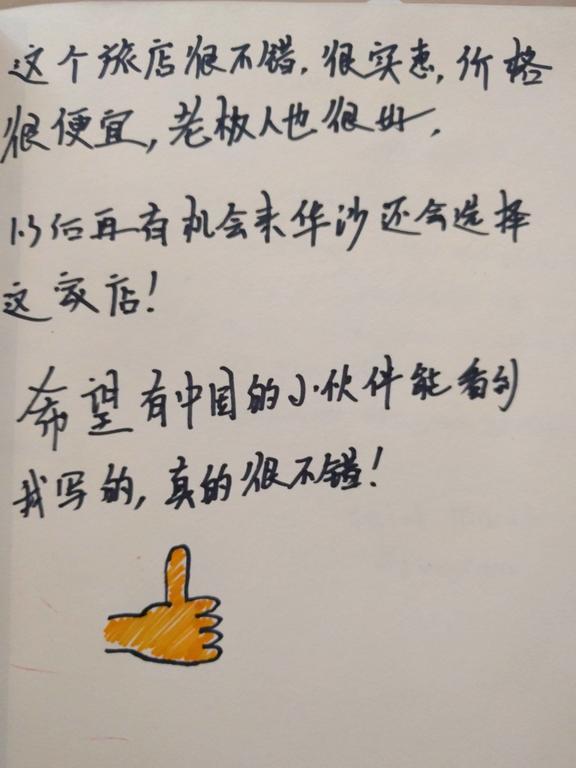 这个旅店很不错，很实惠，价格
很便宜，老板人也很好，
以后再有机会来华沙还会选择
这家店！
希望有中国的小伙伴能看到
我写的，真的很不错！